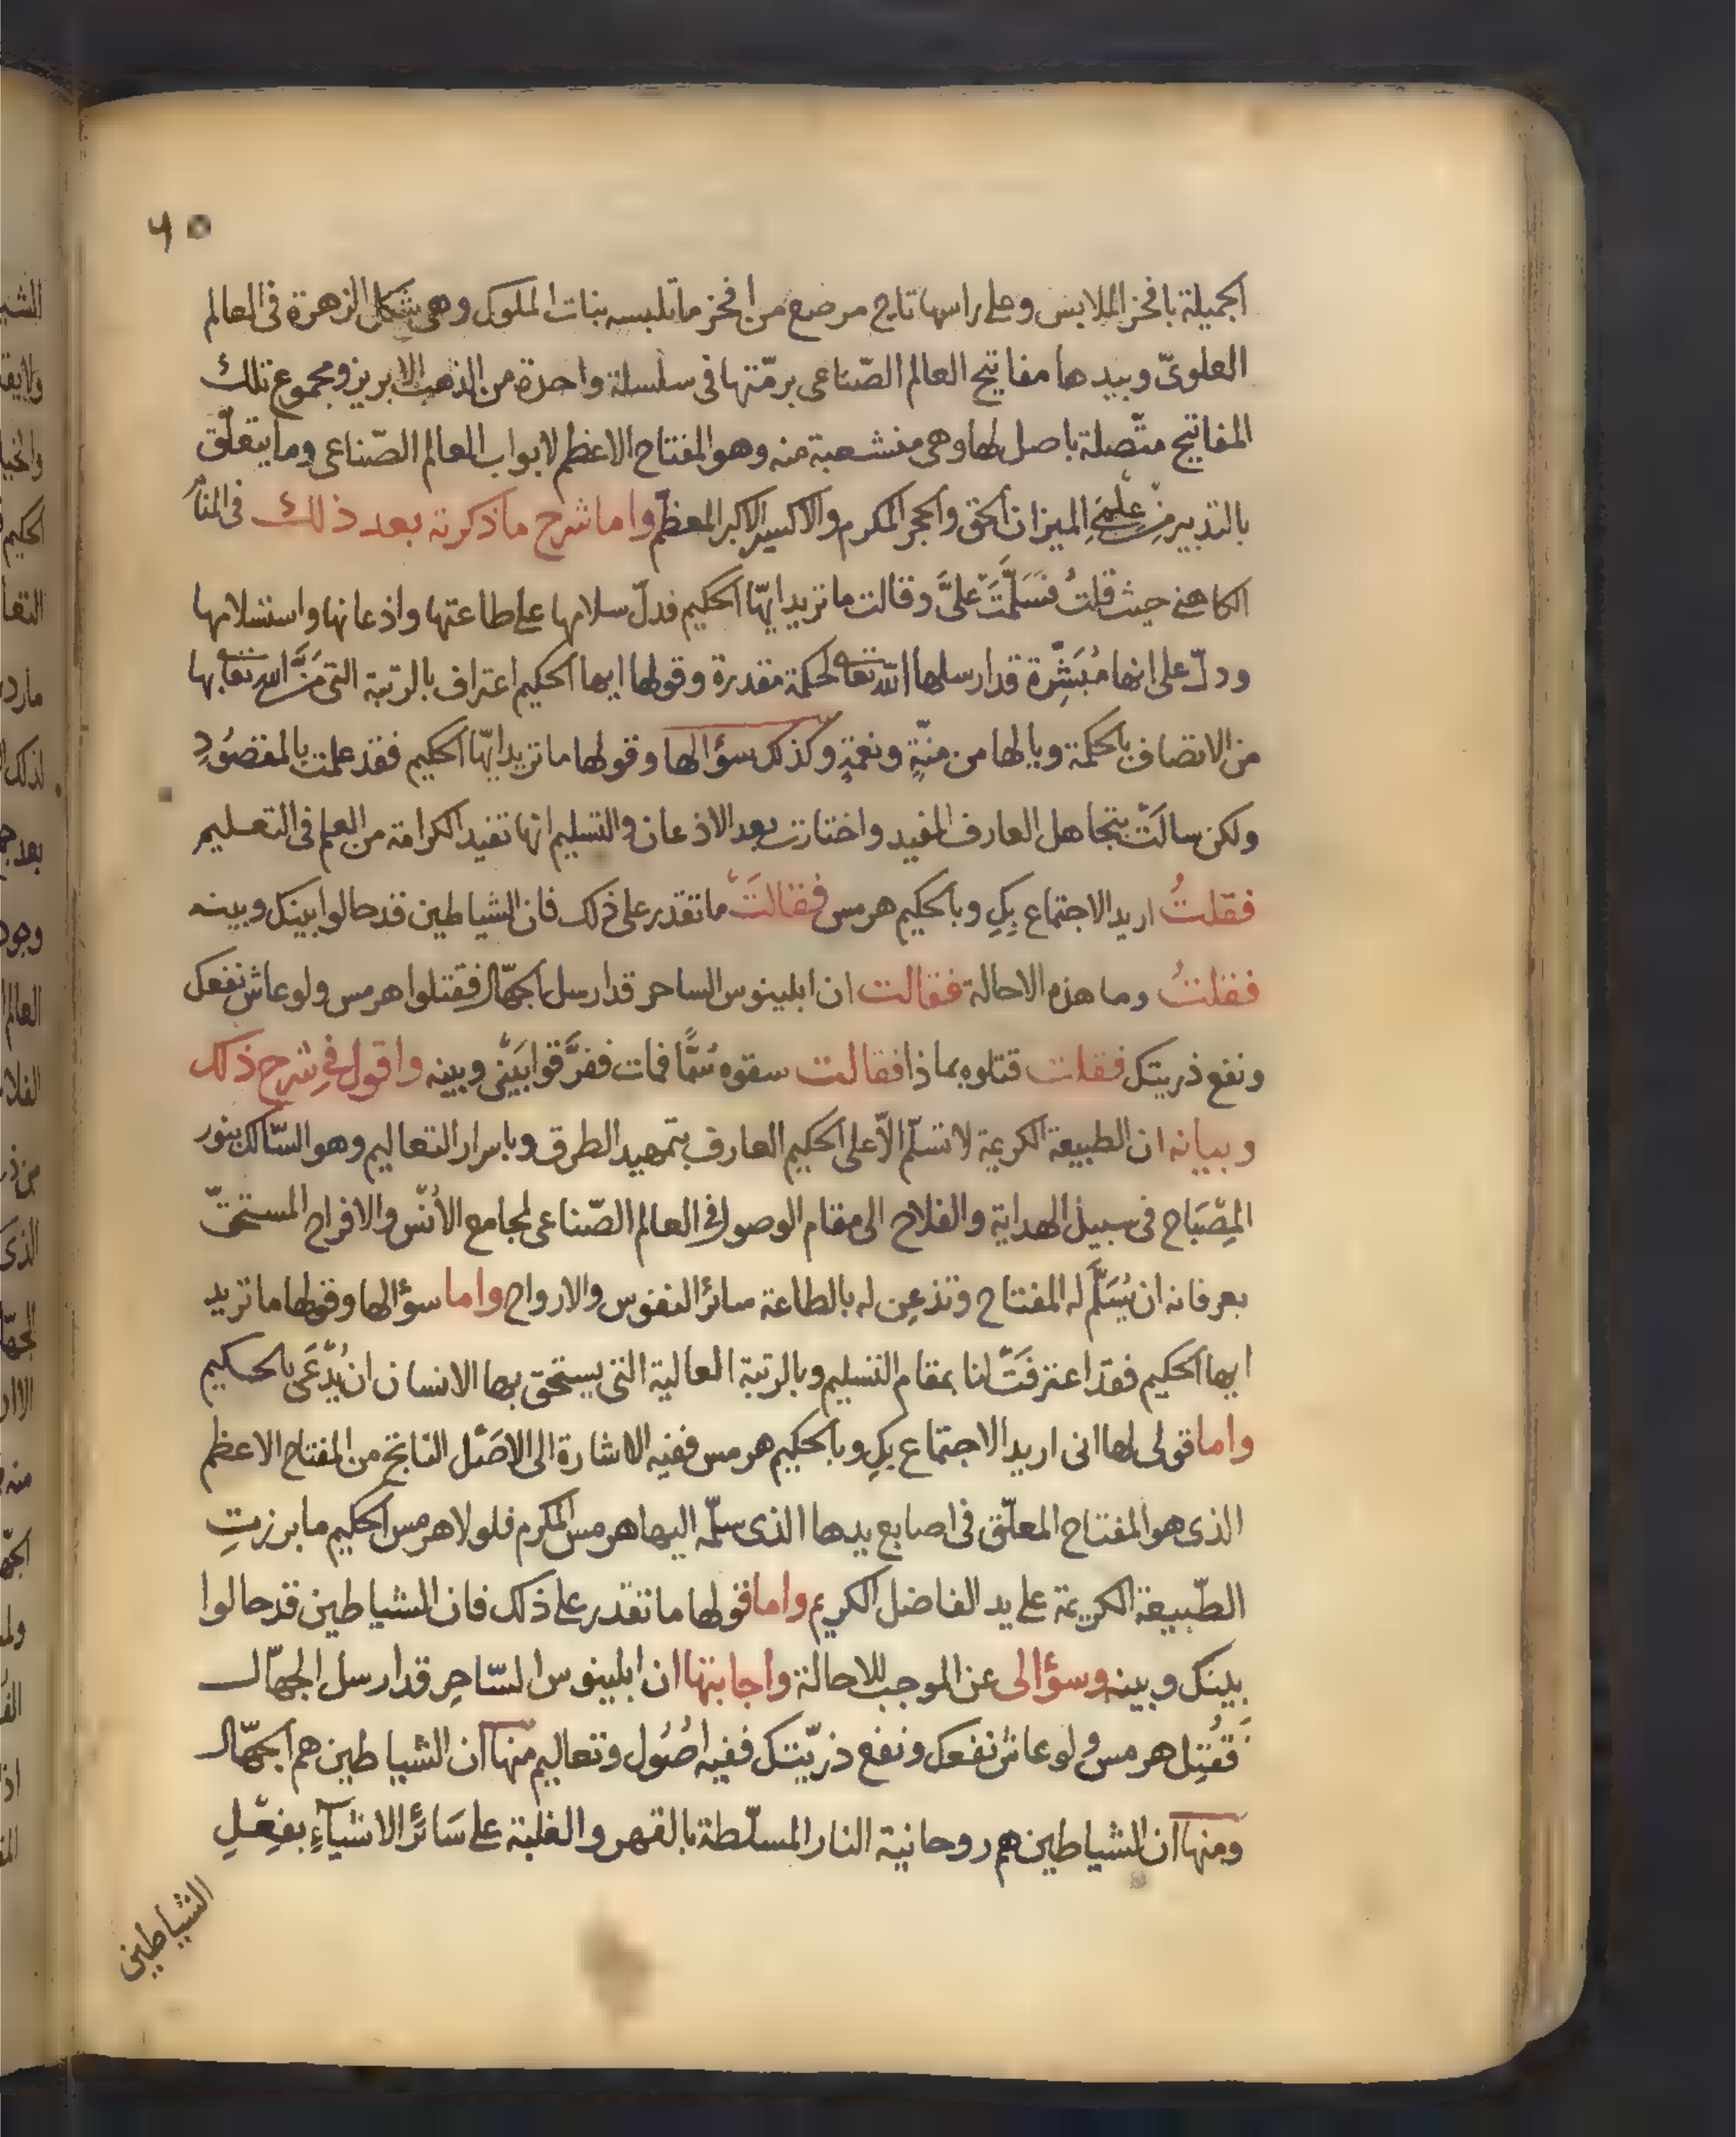 الجميلة بافخر الملابس وعلى راسها تاج مرصع من افخر ما تلبسه بنات الملوك وهى شكل الزهرة فى العالم
العلوىّ وبيدها مفاتيح العالم الصّناعى برمّتها فى سلسلة واحدة من الذهب الابريز ومجموع تلك
المفاتيح متّصلة باصل لها وهى منشعبة منه وهو المفتاح الاعظم لابواب العالم الصّناعى وما يتعلّق
بالتدبير من علمى الميزان الحق والحجر المكرم والاكسير الاكبر المعظّم واما شرح ما ذكرته بعد ذلك فى المنام
الكاهنى حيث قلتُ فسَلَّمَتْ علىَّ وقالت ما تريد ايهّا الحكيم فدلّ سلامها على طاعتها واذعانها واستسلامها
ودلّ على انها مُبَشِّرة قد ارسلها الله تعا لحكمة مقدرة وقولها ايها الحكيم اعتراف بالرتبة التى مَنَّ الله تعا بها
من الاتصاف بالحكمة ويا لها من منّةٍ ونعمةٍ وكذلك سؤالها وقولها ما تريد ايهّا الحكيم فقد علمت بالمقصُودِ
ولكن سالَتْ بتجاهل العارف المفيد واختارت بعد الاذعان والتسليم انها تفيد الكرامة من العلم فى التعليم
فقلتُ اريد الاجتماع بكِ وبالحكيم هرمس فقالَتْ ما تقدر على ذلك فان الشياطين قد حالوا بينك وبينه
فقلتُ وما هذه الاحالة فقالت ان ابلينوس الساحر قد ارسل الجهّال فقتلوا هرمس ولو عاش نفعك
ونفع ذريتك فقلت قتلوه بماذا فقالت سقوه سُمًّا فمات ففرَّقوا بَيْنى وبينه واقول فى شرح ذلك
وبيانه ان الطبيعة الكريمة لا تسلّم الّا على الحكيم العارف بتمهيد الطرق وباسرار التعاليم وهو السّالك بنور
المِصْبَاح فى سبيل الهداية والفلاح الى مقام الوصول فى العالم الصّناعى لمجامع الأُنْس والافراح المستحقّ
بعرفانه ان يُسَلَّم له المفتاح وتذعِن له بالطاعة سائر النفوس والارواح واما سؤالها وقولها ما تريد
ايها الحكيم فقد اعترفَتْ لنا بمقام التسليم وبالرتبة العالية التى يستحق بها الانسان ان يُدْعَى بالحكيم
واما قولى لها انى اريد الاجتماع بكِ وبالحكيم هرمس ففيه الاشارة الى الاصْل الناتج من المفتاح الاعظم
الذى هو المفتاح المعلّق فى اصابع يدها الذى سلّمه اليها هرمس المكرم فلولا هرمس الحكيم ما برزتِ
الطّبيعة الكريمة على يد الفاضل الكريم واما قولها ما تقدر على ذلك فان الشياطين قد حالوا
بينك وبينه وسؤالى عن الموجب للاحالة واجابتها ان ابلينوس السّاحِر قد ارسل الجهّال
فقُتِل هرمس ولو عاش نفعك ونفع ذرّيتك ففيه اصُول وتعاليم منها ان الشياطين هم الجهّال
ومنها ان الشياطين هم روحانية النار المسلّطة بالقهر والغلبة على سَائر الاشيآءِ بفِعْلِ
الشياطين